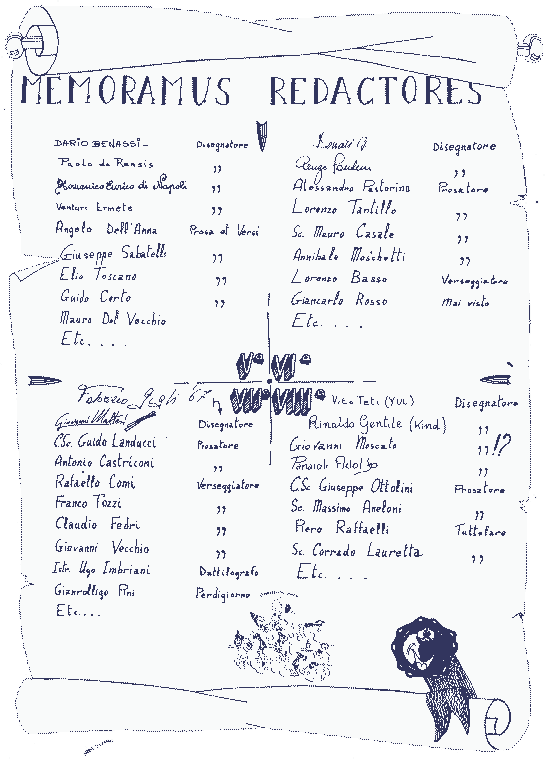 MEMORAMUS REDACTORES
DARIO BENASSI - Disegnatore
Paolo de Rensis ,,
Domenico Enrico di Napoli ,,
Venturi Ermete ,,
Angelo Dell'Anna Prosa et Versi
Giuseppe Sabatelli ,,
Elio Toscano ,,
Guido Certo ,,
Mauro Del Vecchio
Etc. . . .
Disegnatore
Renzo ,,
Alessandro Pastorino Prosatore
Lorenzo Tantillo ,,
Sc. Mauro Casale ,,
Annibale Moschetti ,,
Lorenzo Basso Verseggiatore
Giancarlo Rosso Mai visto
Etc. . . .
V° VI°
VII° VIII°
Fabrizio 67
Giovanni Disegnatore
C.Sc. Guido Landucci Prosatore
Antonio Castriconi ,,
Rafaello Comi Verseggiatore
Franco Tozzi ,,
Claudio Fedri ,,
Giovanni Vecchio ,,
Istr. Ugo Imbriani Dattilografo
Gianrolligo Pini Perdigiorno
Etc....
Vito Teti (YUL) Disegnatore
Rinaldo Gentile (Kind) ,,
Giovanni Moscato ,, !?
,,
C.Sc Giuseppe Ottolini Prosatore
Sc. Massimo Aneloni ,,
Piero Raffaelli Tuttofare
Sc. Corrado Lauretta ,,
Etc. . . .